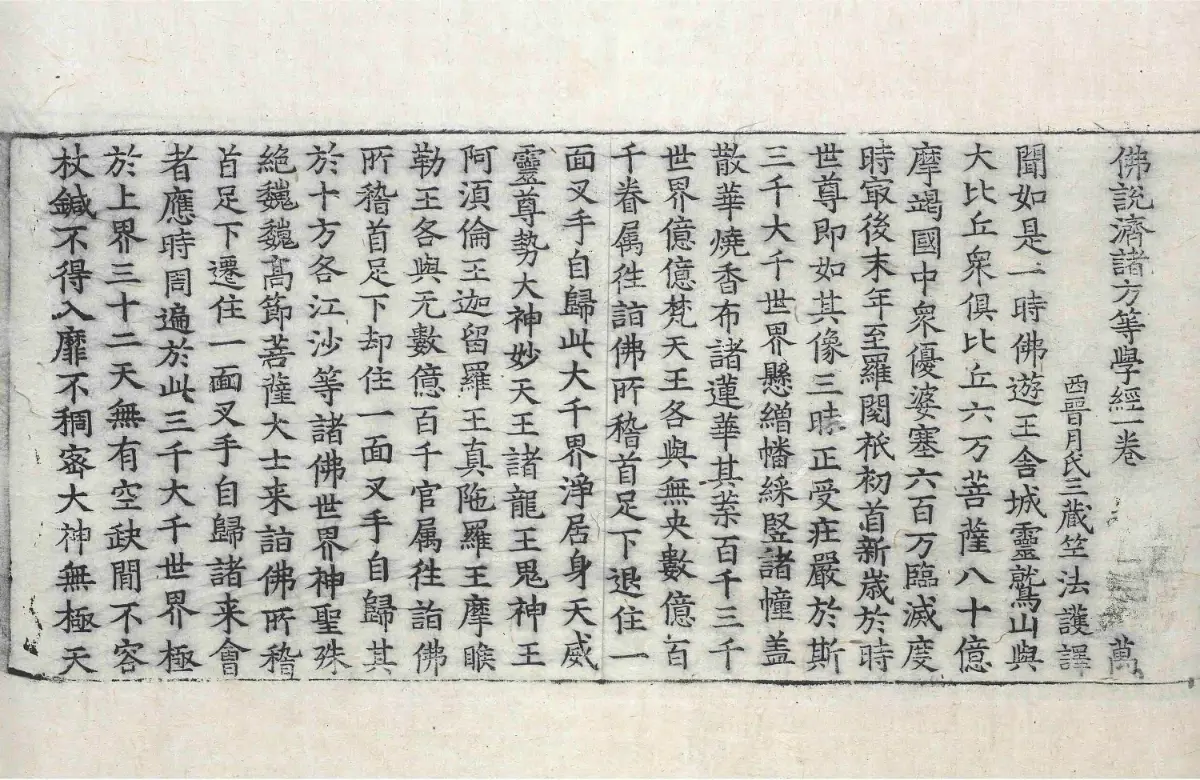 佛說濟諸方等學經一卷 萬
西晉月氏三藏竺法護譯
聞如是一時佛遊王舍城靈鷲山與
大比丘衆俱比丘六万菩薩八十億
摩竭國中衆優婆塞六百万臨滅度
時㝡後末年至羅閱祇初首新歲於時
世尊即如其像三昧正受疘嚴於斯
三千大千世界懸繒幡綵竪諸幢盖
散華燒香布諸蓮華其葉百千三千
世界億億梵天王各與無央數億百
千眷属徃詣佛所稽首足下退住一
面叉手自歸此大千界淨居身天威
靈尊勢大神妙天王諸龍王鬼神王
阿湏倫王迦留羅王真陁羅王摩睺
勒王各與无數億百千官属徃詣佛
所稽首足下却住一面叉手自歸其
於十方各江沙等諸佛世界神聖殊
絕巍巍髙節菩薩大士来詣佛所稽
首足下遷住一面叉手自歸諸来會
者應時周遍於此三千大千世界極
於上界三十二天無有空缺閒不容
杖鍼不得入靡不稠宻大神無極天